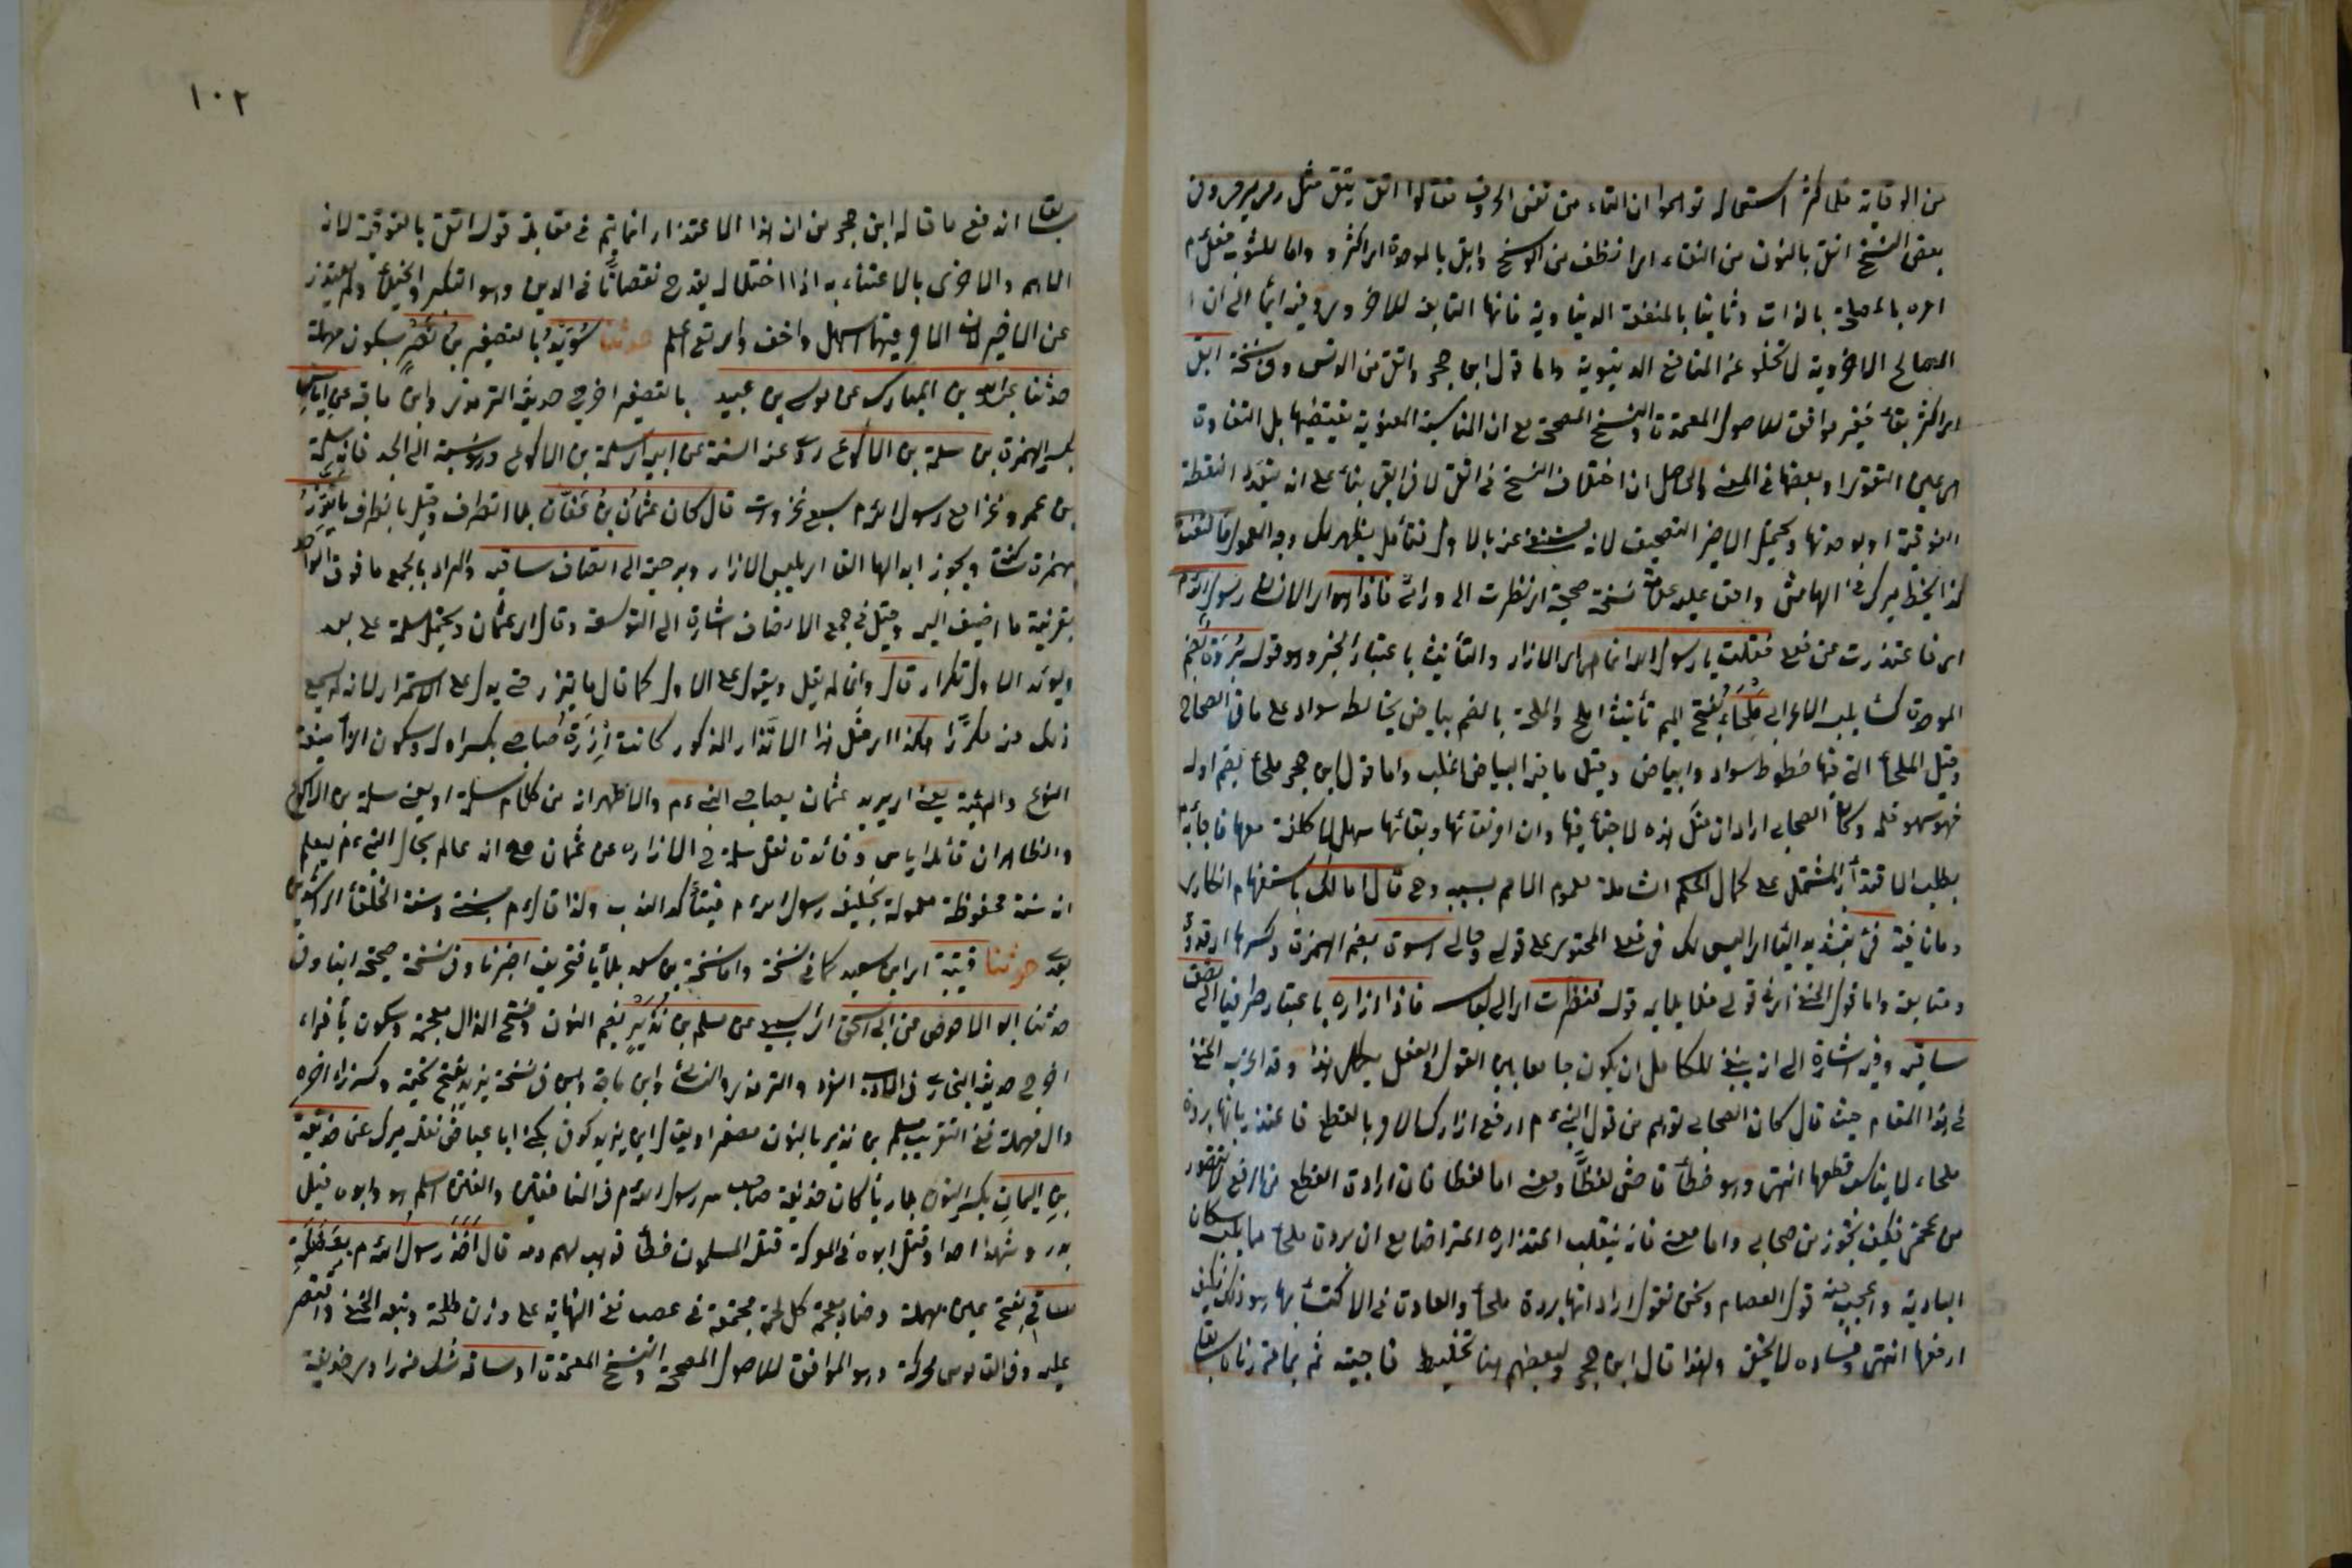 من الوقاية فلما كثر استعماله توهموا ان التاء من نفس الحروف فقالوا اتقى يتقى مثل رمى يرمى وفى
بعض النسخ انقى بالنون من النقاء اى انظف من الوسخ وابقى بالموحدة اى اكثر واما للثوب فعلم
امره باعلمه بالذات وثانيا بالمنفعة الدنياوية فانها التابعة للاخروية وفيه ايماء الى ان
المصالح الاخروية لا تخلو عن المنافع الدنيوية واما قول ابن حجر واتقى من الدنس وفى نسخة ابقى
اى اكثر بقاء فغير موافق للاصول المعتمدة والنسخ المصححة مع ان المناسبة المعنوية يقتضيها بل التفاوت
بين التقوى وبعضها فى المعنى والحاصل ان اختلاف النسخ فى اتقى لا فى ابقى بناء على انه بتعدد النقطة
الفوقية او بوحدتها ويحتمل الاخير التصحيف لانه يستغنى عنه بالاول فتأمل يظهر لك وجه المعول فالتفت
كذا بخط ميرك فى الهامش وافق عليه علامة نسخة صحيحة اى نظرت الى ورائى فاذا هو اى الانسان رسول الله م
اى فاعتذرت عن فعلى فقلت يا رسول الله انما هى اى الازار والتأنيث باعتبار الخبر وهو قوله بردة بضم
الموحدة كساء يلبسه الاعراب ملحاء بفتح الميم تأنيث املح والملحة بالضم بياض يخالطه سواد على ما فى الصحاح
وقيل الملحاء التى فيها خطوط سواد وابياض وقيل ما فيه البياض اغلب واما قول ابن حجر ملحاء بضم اوله
فهو سهو قلم وكان الصحابى اراد ان مثل هذه لا خيلاء فيها وان امر نقائها وبقائها سهل لا كلفة معها فاجابه م
بطلب الاقتداء المشتمل على كمال الحكم الشاملة لعموم الامم بسببه وحى قال اما لك باستفهام انكارى
وما نافية فى بتشديد الياء اى اليس لك فى فعلى المحتوى على قولى وحالى اسوة بضم الهمزة وكسرها اى قدوة
ومتابعة واما قول الحنفى اى فى قولى فلا يلايم قوله فنظرت اى الى لباسه فاذا ازاره باعتبار طرفيه الى نصف
ساقيه وفيه اشارة الى انه ينبغى للكامل ان يكون جامعا بين القول والفعل هذا وقد اغرب الحنفى
فى هذا المقام حيث قال كان الصحابى توهم من قول النبى م ارفع ازارك الامر بالقطع فاعتذر بانها بردة
ملحاء لا يناسب قطعها انتهى وهو خطأ فاحش لفظا ومعنى اما لفظا فان ارادة القطع من الرفع لا يتصور
من عجمى فكيف يجوز من صحابى واما معنى فانه ينقلب اعتذاره اعتراضا مع ان بردة ملحاء مما يلبس سكان
البادية واعجب منه قول العصام ونحن نقول اراد انها بردة ملحاء والعادة فى الاكتساء بها هو ذلك فكيف
ارفعها انتهى وفساده لا يخفى ولهذا قال ابن حجر ولبعضهم هنا تخليط فاجتنبه ثم بما قررناه سابقا
سابقا اندفع ما قاله ابن حجر من ان هذا الاعتذار انما يتم فى مقابلة قوله اتقى بالفوقية لانه
الاهم والاحرى بالاعتناء به اذ اختلاله يقدح نقصانا فى الدين وهو التكبر والخيلاء ولم يعتذر
عن الاخير لان الامر فيهما اسهل واخف والله تعالى اعلم حدثنا سويد بالتصغير بن نصر بسكون مهملة
حدثنا عبد الله بن المبارك عن موسى بن عبيد بالتصغير اخرج حديثه الترمذى وابن ماجة عن اياس
بكسر الهمزة بن سلمة بن الاكوع روى عنه الستة عن ابيه اى سلمة بن الاكوع ونسبته الى الجد فانه سلمة
بن عمرو وغزا مع رسول الله م سبع غزوات قال كان عثمان بن عفان بلا انصراف وقيل بانصراف يأتزر
بهمزة ساكنة ويجوز ابدالها الفا اى يلبس الازار ويرخيه الى انصاف ساقيه والمراد بالجمع ما فوق الواحد
بقرينة ما اضيف اليه وقيل فى جمع الانصاف اشارة الى التوسعة وقال اى عثمان ويحتمل سلمة على بعد
ويؤيد الاول تكرار قال وانما لم يقل ويقول على الاول كما قال يأتزر حتى يدل على الاستمرار لانه لم يسمع
ذلك منه مكررا هكذا اى مثل هذا الاتزار المذكور كانت ازرة صاحبى بكسر اوله وسكون الزاء صيغة
النوع والهيئة يعنى اى يريد عثمان بصاحبى النبى م والاظهر انه من كلام سلمة اى يعنى سلمة بن الاكوع
والظاهر ان قائله اياس وفائدة نقل سلمة فى الازار عن عثمان مع انه عالم بحال النبى م ليعلم
انه سنة محفوظة معمولة بخليفة رسول الله م فيتأكد الندب ولذا قال م سنتى وسنة الخلفاء الراشدين
بعدى حدثنا قتيبة اى ابن سعيد كما فى نسخة واما نسخة بن سعد بلا ياء فتحريف اخبرنا وفى نسخة صحيحة انبا وفى
حدثنا ابو الاحوص عن ابى اسحق اى السبيعى عن مسلم بن نذير بضم النون وفتح الذال معجمة وسكون ياء فراء
اخرج حديثه البخارى فى الادب المفرد والترمذى والنسائى وابن ماجة وابن فى نسخة يزيد بفتح تحتية وكسر زاء اخره
دال مهملة ففى التقريب مسلم بن نذير بالنون مصغرا ويقال ابن يزيد كوفى يكنى ابا عياض نقله ميرك عن حذيفة
بن اليمان بكسر النون بلا ياء كان حذيفة صاحب سر رسول الله م فى المنافقين والفتن اسلم هو وابوه قبل
بدر وشهد احدا وقتل ابوه فى المعركة قتله المسلمون خطأ فوهب لهم دمه قال اخذ رسول الله م بعضلة
ساقى بفتح عين مهملة وضاد معجمة كل لحمة مجتمعة فى عصب ففى النهاية على وزن طلحة وتبعه الحنفى واقتصر
عليه وفى القاموس محركة وهو الموافق للاصول المصححة والنسخ المعتمدة او ساقه شك من راو عن حذيفة
١٠٢